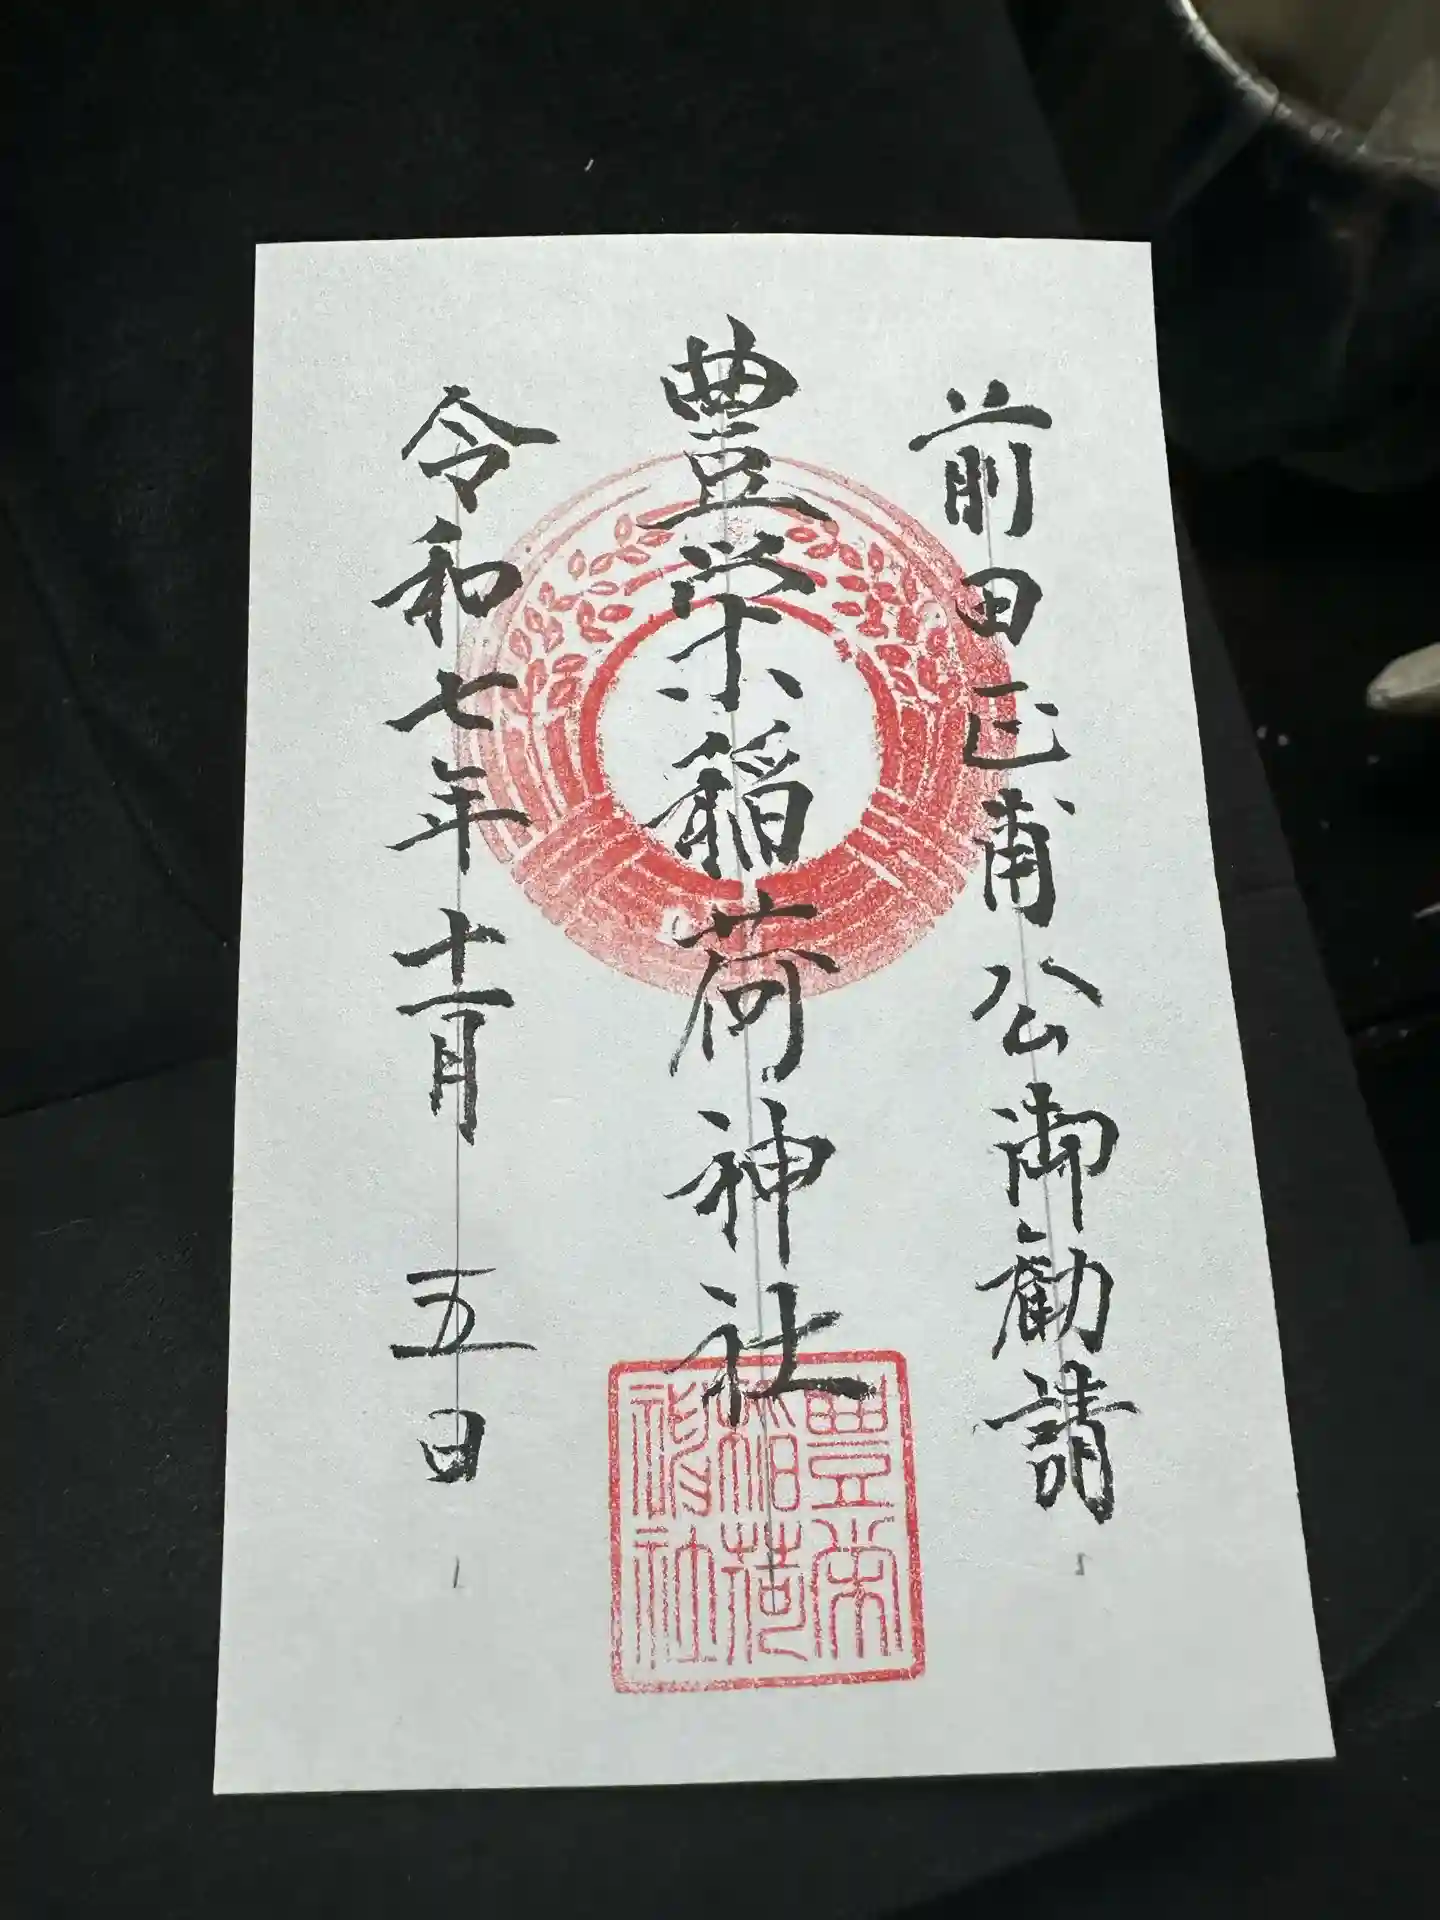 前田正甫公御勧請
豊栄稲荷神社
令和七年十一月五日
豊栄
稲荷
神社